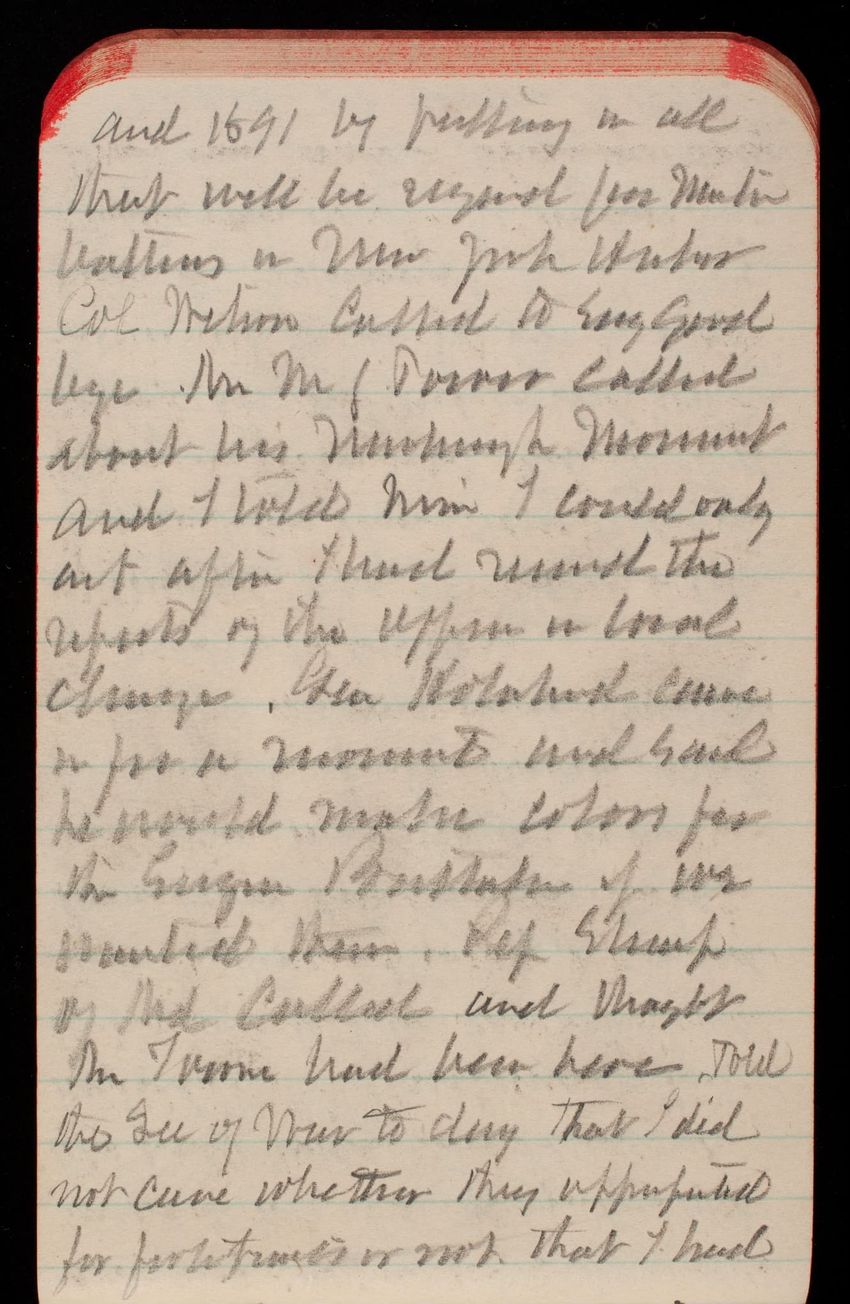 and 1891 by putting in all
that will be required for Mortar
batteries in New York Harbor
Col Wilson called to say good
bye. Hon M Tower called
about his Newburgh Monument
and I told him I could only
act after I had received the
reports of the officer in local
charge. Gen Holabird came
in for a moment and said
he would make colors for
the Engineer Battalion if we
wanted them. Rep Stump
of Md called and thought
the had been here. Told
the Sec of War to day that I did
not care whether they appropriated
for fortifications or not that I had